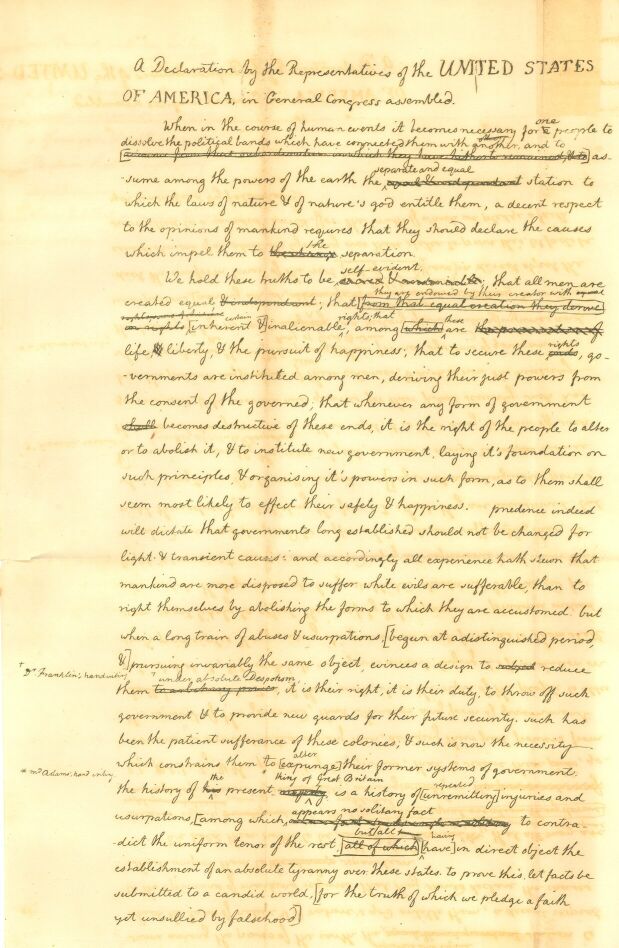 A Declaration by the Representatives of the UNITED STATES
OF AMERICA, in General Congress assembled.
When in the course of human events it becomes necessary for a one people to
dissolve the political bands which have connected them with another, and to
as-
separate and equal
-sume among the powers of the earth the equal & independant station to
which the laws of nature & of nature's god entitle them, a decent respect
to the opinions of mankind requires that they should declare the causes
the
which impel them to the change separation.
self-evident,
We hold these truths to be & undeniable; that all men are
they are endowed by their creator with
created equal & independant; that [from that equal creation they derive
certain rights; that these
[inherent & inalienable, among [which] are the preservation of
rights
life, & liberty, & the pursuit of happiness; that to secure these ends, go-
-vernments are instituted among men, deriving their just powers from
the consent of the governed; that whenever any form of government
shall becomes destructive of these ends, it is the right of the people to alter
or to abolish it, & to institute new government, laying it's foundation on
such principles & organising it's powers in such form, as to them shall
seem most likely to effect their safety & happiness. prudence indeed
will dictate that governments long established should not be changed for
light & transient causes: and accordingly all experience hath shewn that
mankind are more disposed to suffer while evils are sufferable, than to
right themselves by abolishing the forms to which they are accustomed. but
when a long train of abuses & usurpations, [begun at a distinguished period,
&] pursuing invariably the same object, evinces a design to reduce
† Dr Franklin's handwriting
† under absolute Despotism
them to arbitrary power, it is their right, it is their duty, to throw off such
government & to provide new guards for their future security. such has
been the patient sufferance of these colonies; & such is now the necessity
alter
which constrains them to [expunge] their former systems of government.
* mr Adams' hand writing
the king of Great Britain repeated
the history of his present majesty is a history of [unremitting] injuries and
appears no solitary fact
usurpations, [among which, to contra-
but all having
-dict the uniform tenor of the rest, [all of which] [have] in direct object the
establishment of an absolute tyranny over these states. to prove this, let facts be
submitted to a candid world, [for the truth of which we pledge a faith
yet unsullied by falsehood]